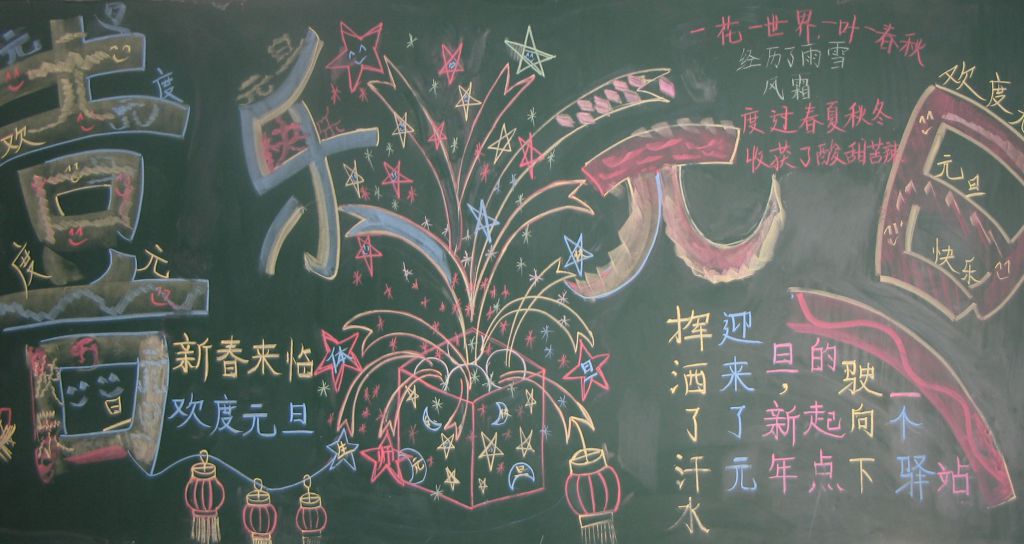 喜
乐
元
旦
一花一世界，一叶一春秋
经历了雨雪
风霜
度过春夏秋冬
收获了酸甜苦辣
欢度元
元旦
快乐
新春来临
欢度元旦
挥洒了汗水
迎来了元
旦，新年
的起点
驶向下
一个驿站